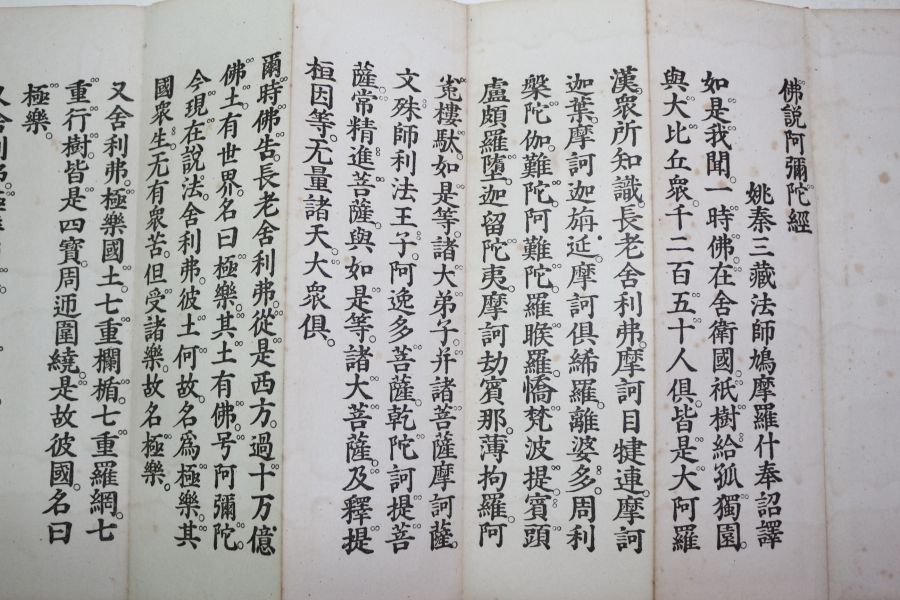 佛說阿彌陀經
姚秦三藏法師鳩摩羅什奉詔譯
如是我聞。一時佛。在舍衛國。祇樹給孤獨園。
與大比丘衆。千二百五十人俱。皆是大阿羅
漢。衆所知識。長老舍利弗。摩訶目犍連。摩訶
迦葉。摩訶迦旃延。摩訶俱絺羅。離婆多。周利
槃陀伽。難陀。阿難陀。羅睺羅。憍梵波提。賓頭
盧頗羅墮。迦留陀夷。摩訶劫賓那。薄拘羅。阿
㝹樓馱。如是等。諸大弟子。并諸菩薩摩訶薩。
文殊師利法王子。阿逸多菩薩。乾陀訶提菩
薩。常精進菩薩。與如是等。諸大菩薩。及釋提
桓因等。无量諸天。大衆俱。
爾時佛告。長老舍利弗。從是西方。過十万億
佛土。有世界。名曰極樂。其土有佛。号阿彌陀。
今現在說法。舍利弗。彼土何故。名爲極樂。其
國衆生。无有衆苦。但受諸樂。故名極樂。
又舍利弗。極樂國土。七重欄楯。七重羅網。七
重行樹。皆是四寶。周迊圍繞。是故彼國。名曰
極樂。